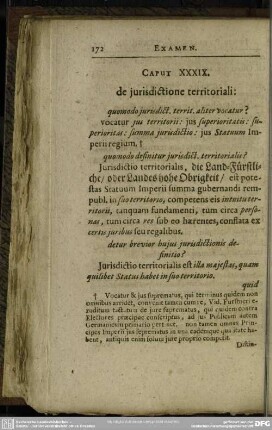 172 EXAMEN.
CAPUT XXXIX.
de jurisdictione territoriali:
quomodo jurisdict. territ. aliter vocatur?
vocatur jus territorii: jus superioritatis: su-
perioritas: summa jurisdictio: jus Statuum Im-
perii regium, †
quomodo definitur jurisdict. territorialis?
Jurisdictio territorialis, die Land-Fürstli-
che/ oder Landes hohe Obrigkeit/ est pote-
stas Statuum Imperii summa gubernandi rem-
publ. in suo territorio, competens eis intuitu ter-
ritorii, tanquam fundamenti, tum circa perso-
nas, tum circa res sub eo hærentes, constata ex
certis juribus seu regalibus.
detur brevior hujus jurisdictionis de-
finitio?
Jurisdictio territorialis est illa majestas, quam
quilibet Status habet in suo territorio.
quid
† Vocatur & jus suprematus, qui terminus quidem non
omnibus arridet, convenit tamen
Electores principes
Germanicum primario pertinet, non tamen omnes Prin-
cipes Imperii jus suprematus in
bent, proprio compar.
Distin-